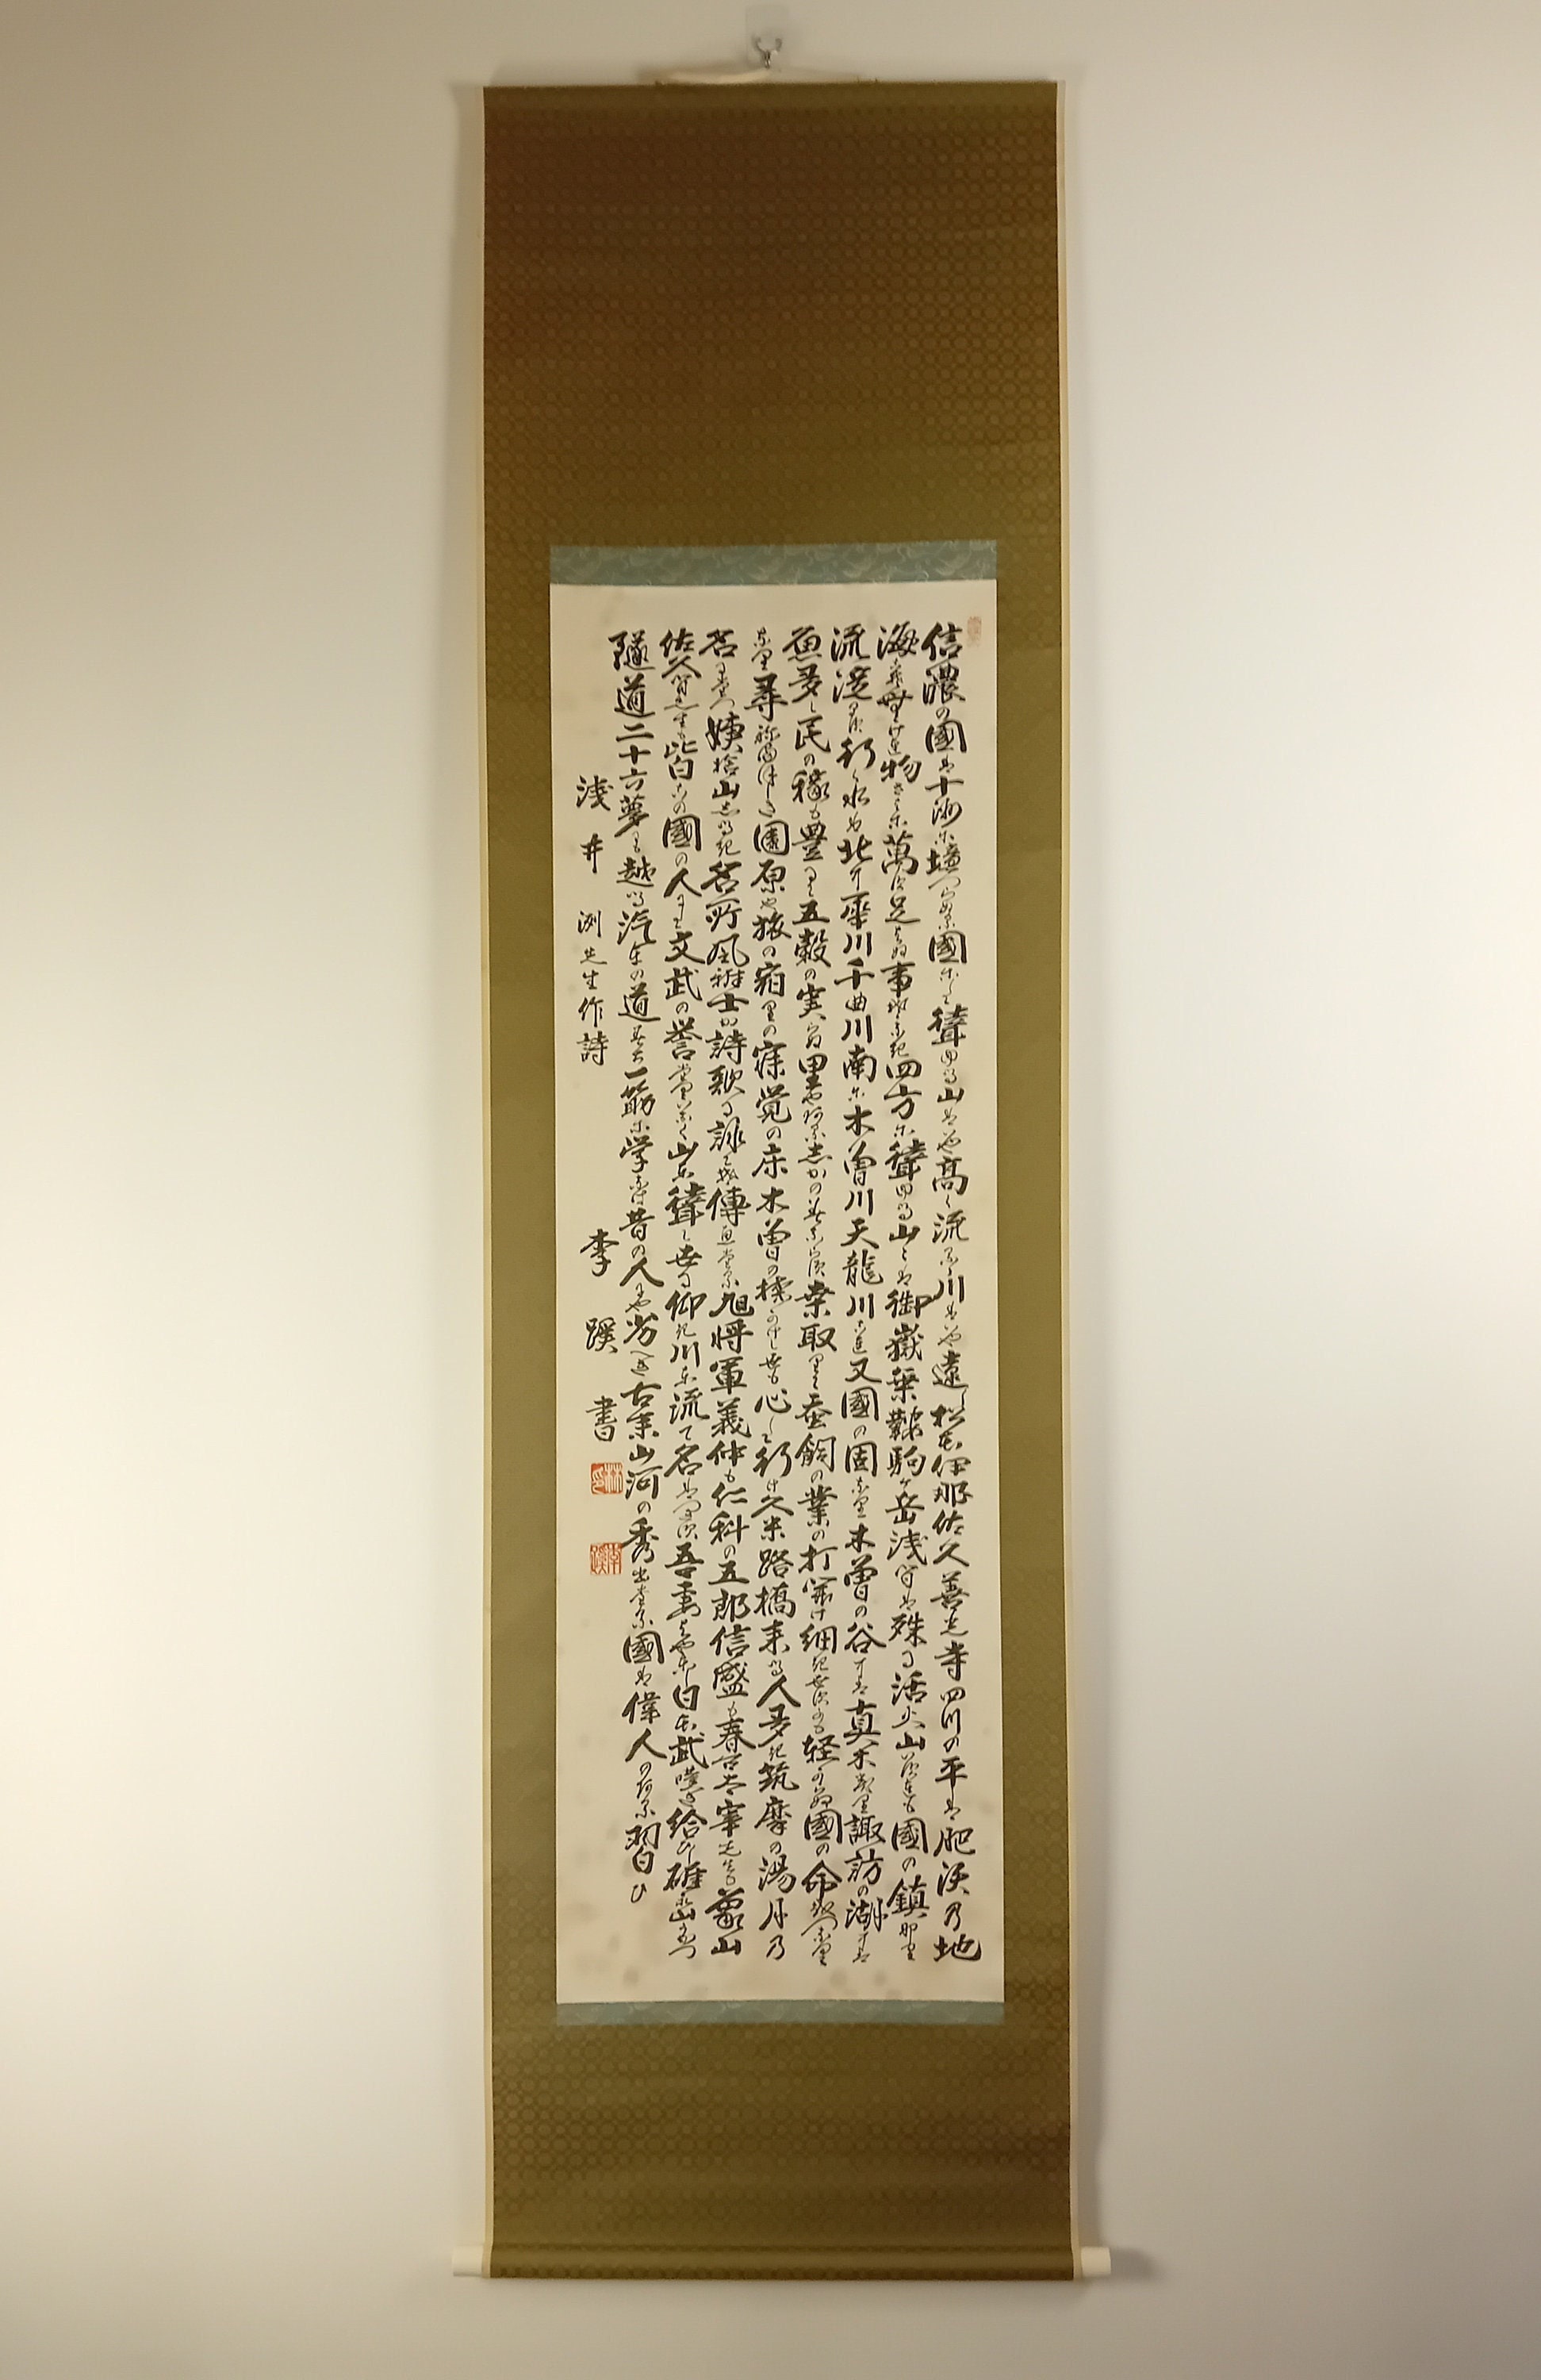 信濃の國は十州に境つらぬる國にして聳ゆる山はいや高く流るゝ川はいや遠し松本伊那佐久善光寺四つの平は肥沃の地
海こそ無けれ物さはに萬たらはぬ事ぞなき四方に聳ゆる山々は御嶽乗鞍駒ヶ岳浅間は殊に活火山いづれも國の鎮なり
流淀まず行く水は北に犀川千曲川南に木曽川天龍川これ又國の固なり木曽の谷には真木茂り諏訪の湖には
魚多し民の稼も豊にて五穀の実らぬ里やある志かのみならず桑取りて蚕飼の業の打開け細きよすがも軽からぬ國の命をつなぐ
なり尋ねまほしき園原や旅の宿りの寐覚の床木曽の棧かけし世も心して行け久米路橋来る人多き筑摩の湯月の
名にたつ姨捨山しるき名所と風雅士が詩歌に詠てぞ傳へたる旭将軍義仲も仁科の五郎信盛も春台太宰先生も象山
佐久間先生も皆この國の人にして文武の誉たぐひなく山と聳えて世に仰ぎ川と流れて名はつきず吾妻はやとし日本武嘆き給ひし碓氷山穿つ
隧道二十六夢にも越ゆる汽車の道みち一筋に学びなば昔の人にや劣るべき古来山河の秀でたる國は偉人のある習ひ
浅井洌先生作詩
李蹊書